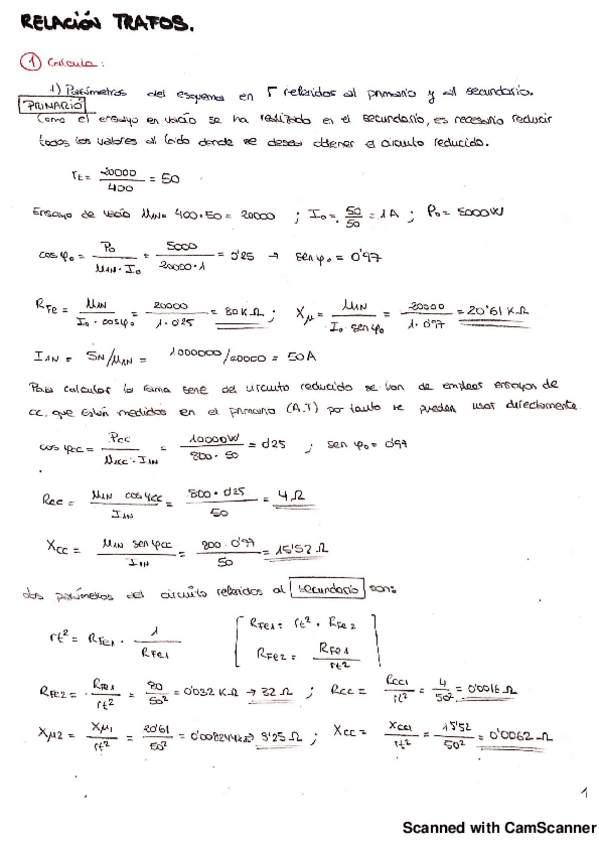 RELACIÓN TRAFOS.
① Calcula:
1) Parámetros del esquema en Γ referidos al primario y al secundario.
PRIMARIO
Como el ensayo en vacío se ha realizado en el secundario, es necesario reducir
todos los valores al lado donde se desea obtener el circuito reducido.
rt = 20000/400 = 50
Ensayo de vacío U1N = 400·50 = 20000 ; I0 = 50/50 = 1A ; P0 = 5000W
cos φ0 = P0/(U1N·I0) = 5000/(20000·1) = 0'25 → sen φ0 = 0'97
RFe = U1N/(I0·cosφ0) = 20000/(1·0'25) = 80 KΩ ; Xμ = U1N/(I0 senφ0) = 20000/(1·0'97) = 20'61 KΩ
I1N = SN/U1N = 1000000/20000 = 50A
Para calcular la rama serie del circuito reducido se van de emplear ensayos de
cc, que están medidos en el primario (A.T) por tanto se pueden usar directamente.
cos φcc = Pcc/(U1cc·I1N) = 10000W/(800·50) = 0'25 ; sen φ0 = 0'97
Rcc = U1N cosφcc/I1N = 800·0'25/50 = 4Ω
Xcc = U1N senφcc/I1N = 800·0'97/50 = 15'52 Ω
Los parámetros del circuito referidos al secundario son:
rt² = RFe1 · 1/RFe1 [RFe1 = rt² · RFe2
RFe2 = RFe1/rt²]
RFe2 = RFe1/rt² = 80/50² = 0'032 KΩ → 32 Ω ; Rcc = Rcc1/rt² = 4/50² = 0'0016 Ω
Xμ2 = Xμ1/rt² = 20'61/50² = 0'008244KΩ 8'25 Ω ; Xcc = Xcc1/rt² = 15'52/50² = 0'0062 Ω
1
Scanned with CamScanner